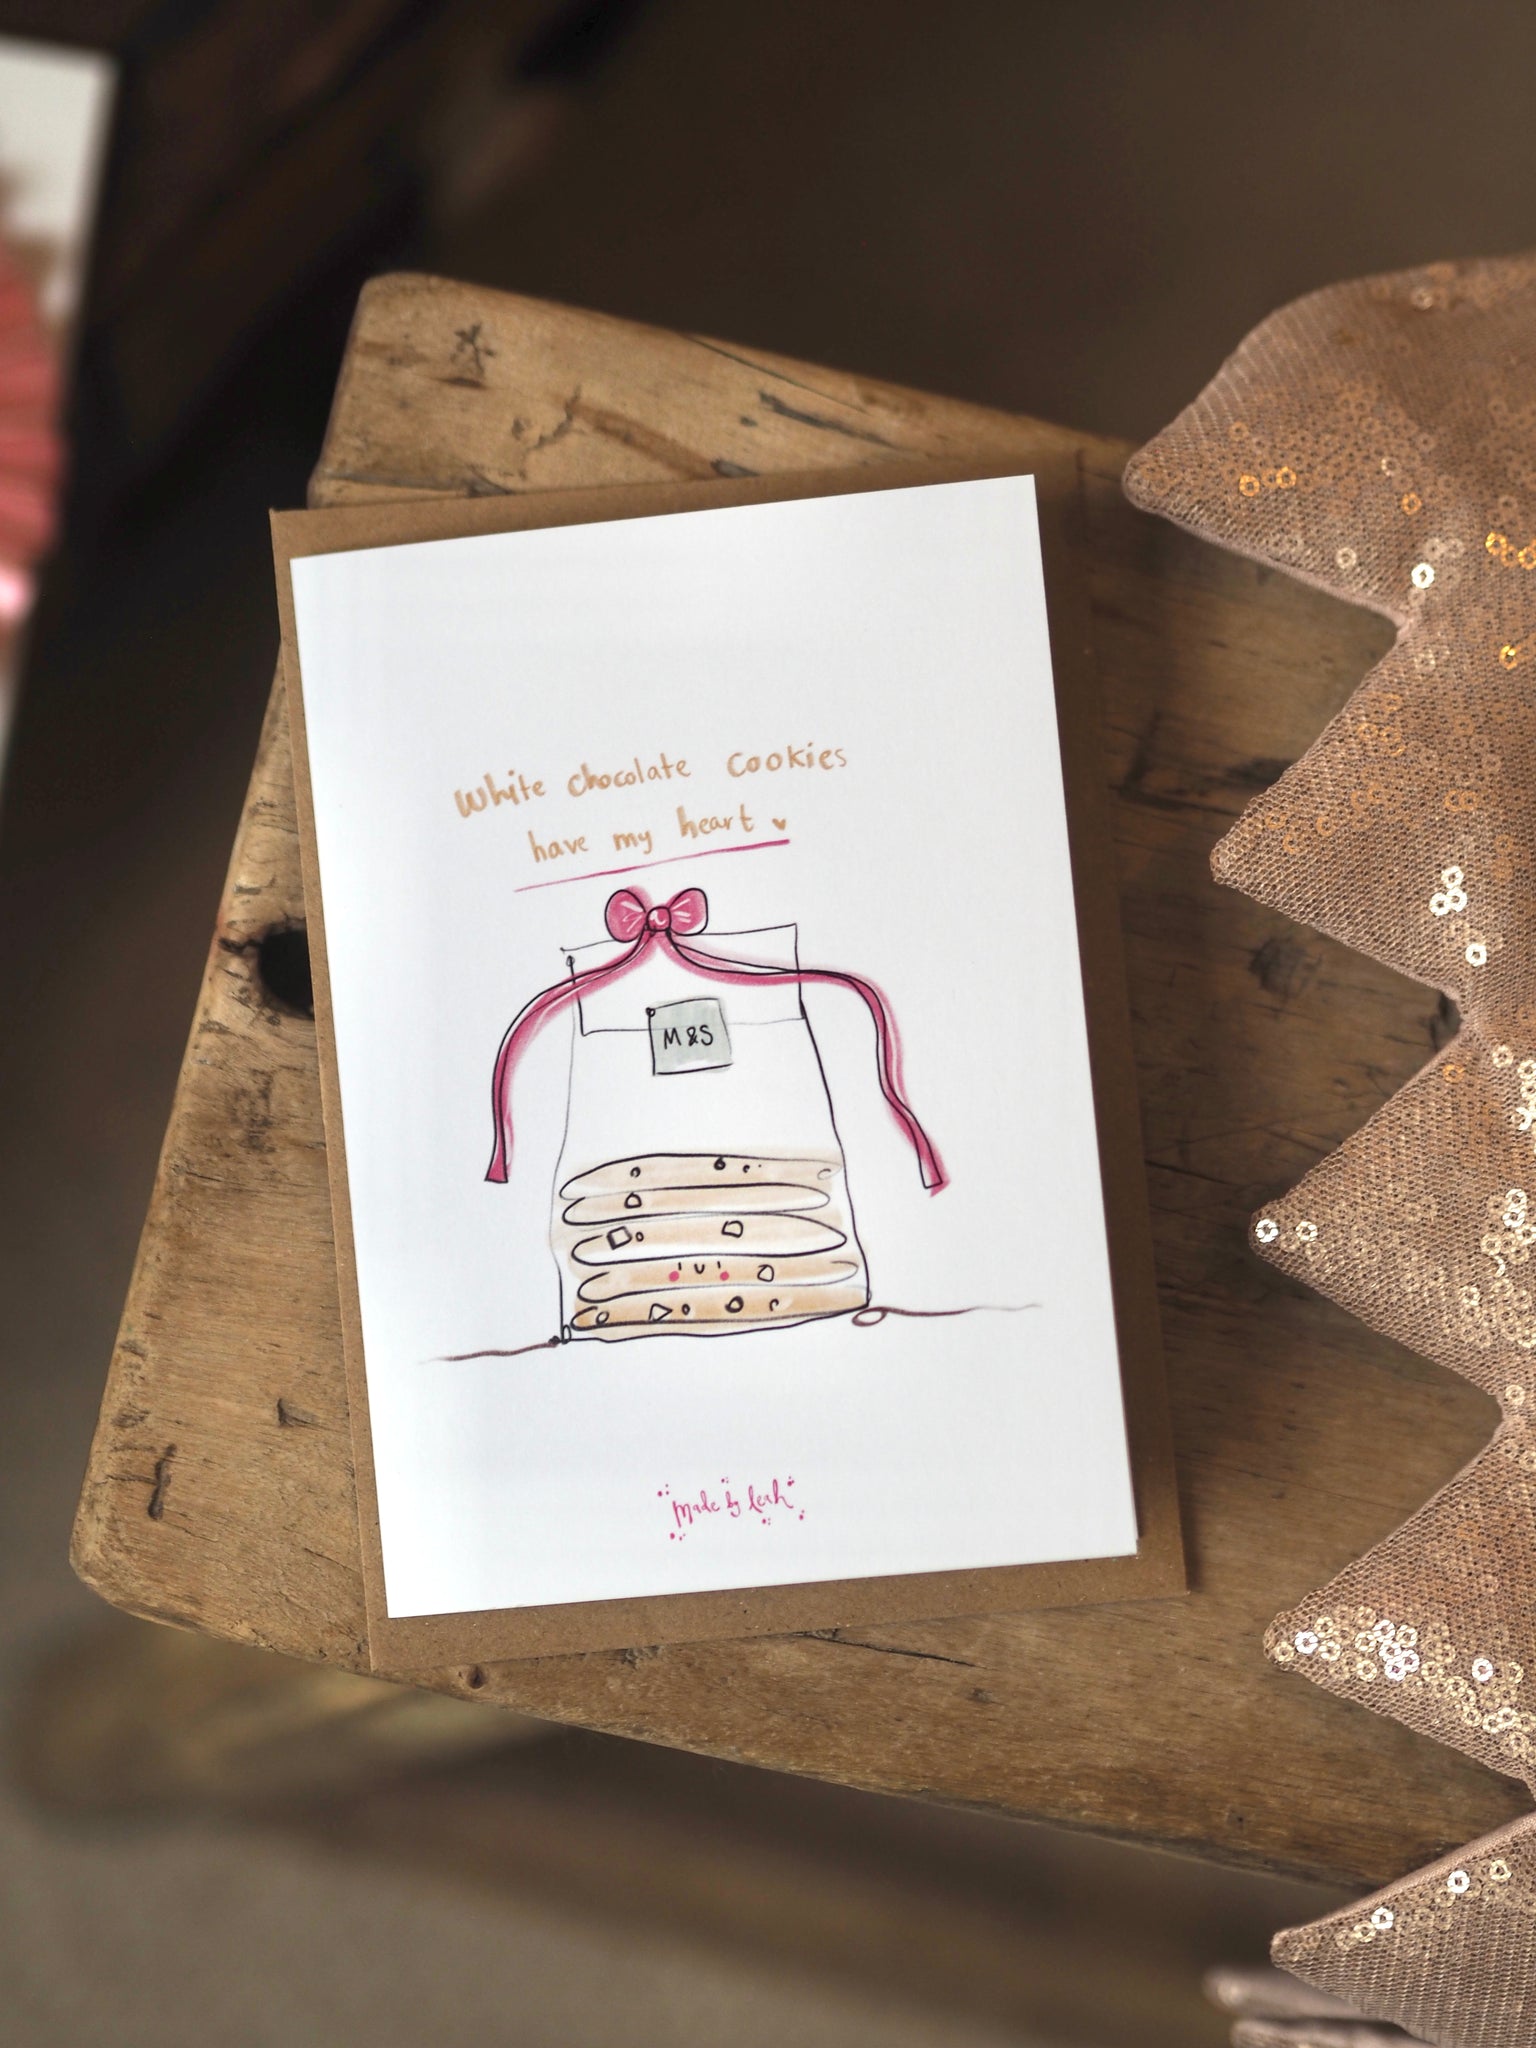 White chocolate cookies
have my heart
M&S
made by leah